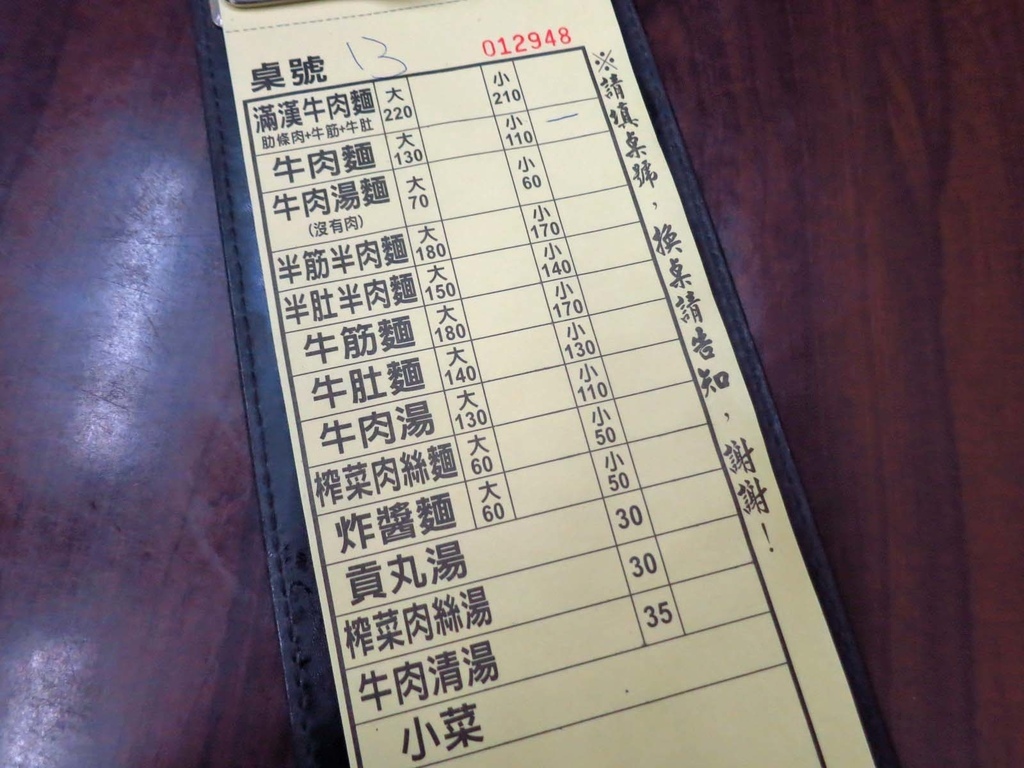 012948
桌號 13
滿漢牛肉麵 大 220 小 210
肋條肉+牛筋+牛肚
牛肉麵 大 130 小 110 一
牛肉湯麵 大 70 小 60
(沒有肉)
半筋半肉麵 大 180 小 170
半肚半肉麵 大 150 小 140
牛筋麵 大 180 小 170
牛肚麵 大 140 小 130
牛肉湯 大 130 小 110
榨菜肉絲麵 大 60 小 50
炸醬麵 大 60 小 50
貢丸湯 30
榨菜肉絲湯 30
牛肉清湯 35
小菜
※請填桌號,換桌請告知,謝謝!